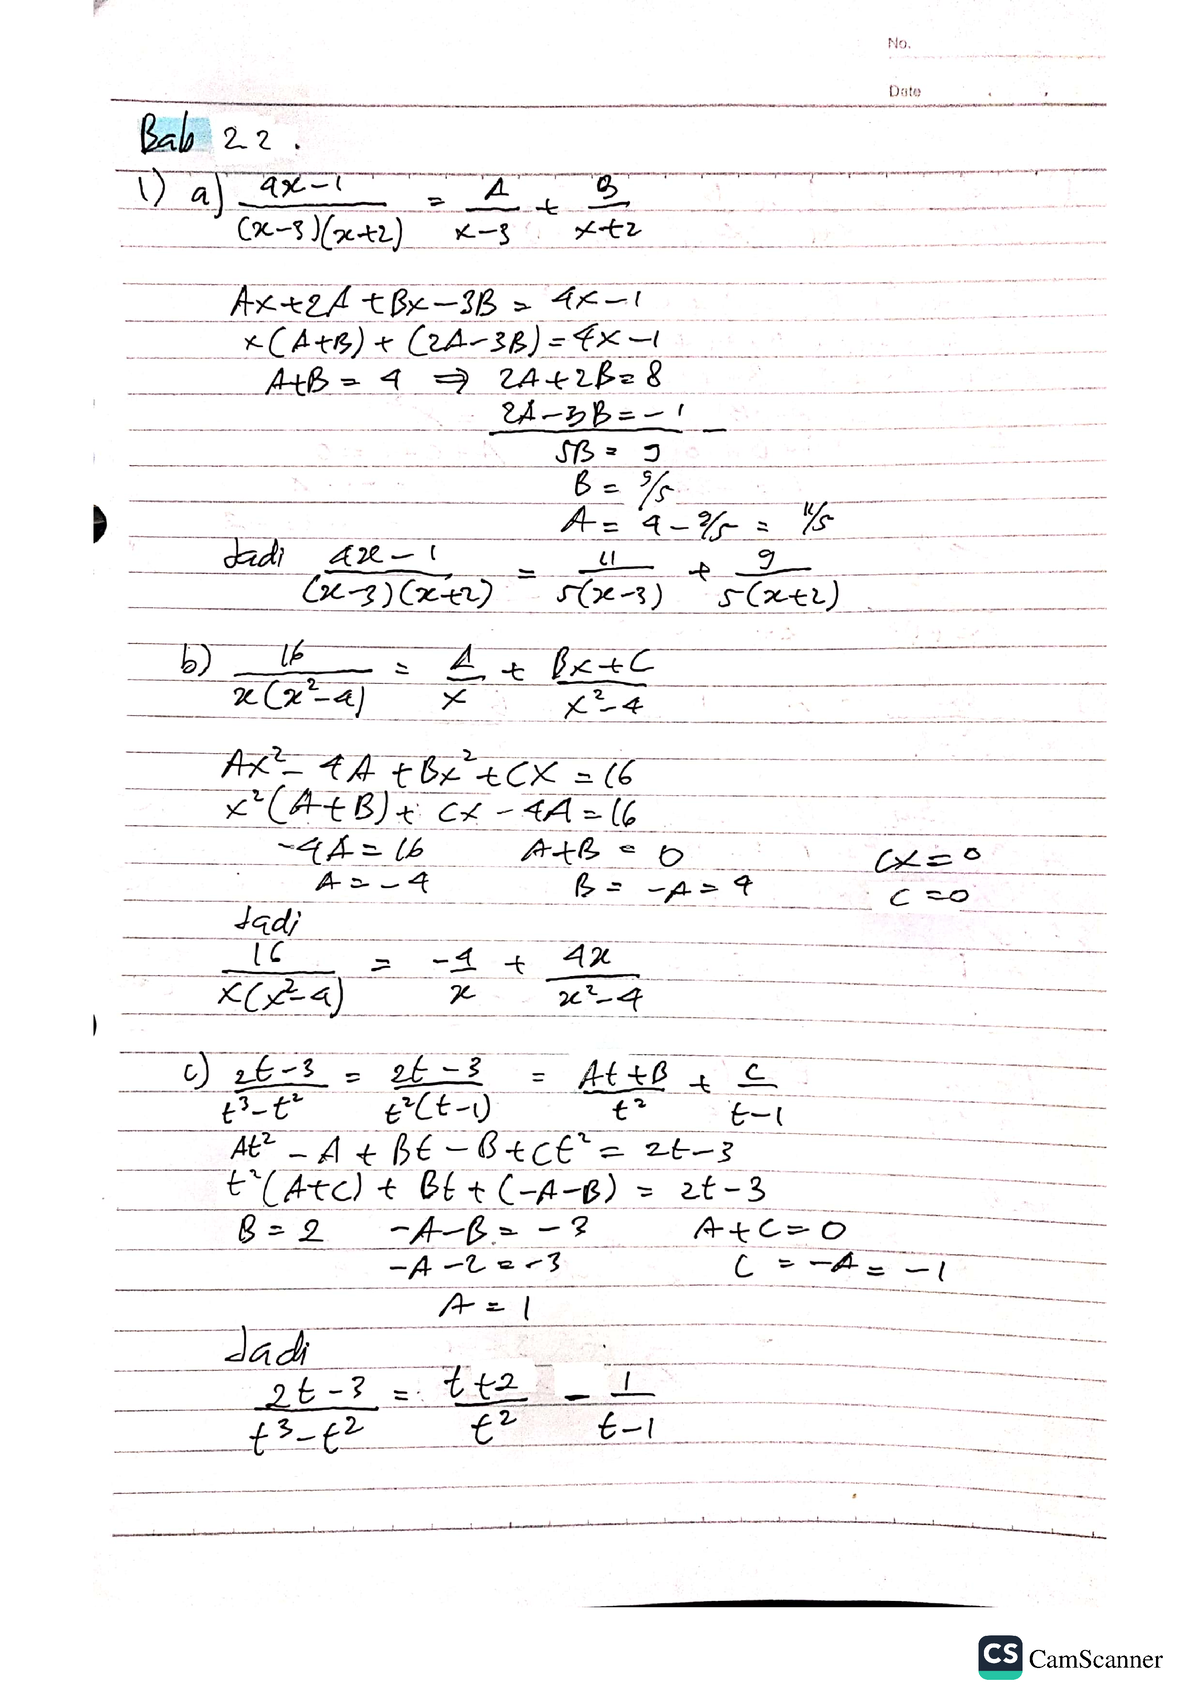 No.
Date
Bab 22.
1) a) 4x-1 / (x-3)(x+2) = A / x-3 + B / x+2
Ax+2A+Bx-3B = 4x-1
x(A+B) + (2A-3B) = 4x-1
A+B = 4 ⇒ 2A+2B = 8
2A-3B = -1 -
5B = 9
B = 9/5
A = 4 - 9/5 = 11/5
Jadi 4x-1 / (x-3)(x+2) = 11 / 5(x-3) + 9 / 5(x+2)
b) 16 / x(x²-4) = A / x + Bx+C / x²-4
Ax²-4A+Bx²+CX = 16
x²(A+B) + Cx - 4A = 16
-4A = 16 A+B = 0 CX = 0
A = -4 B = -A = 4 C = 0
Jadi
16 / x(x²-4) = -4 / x + 4x / x²-4
c) 2t-3 / t³-t² = 2t-3 / t²(t-1) = At+B / t² + C / t-1
At² - A + Bt - B + Ct² = 2t-3
t²(A+C) + Bt + (-A-B) = 2t-3
B = 2 -A-B = -3 A+C = 0
-A-2 = -3 C = -A = -1
A = 1
Jadi
2t-3 / t³-t² = t+2 / t² - 1 / t-1
CS CamScanner